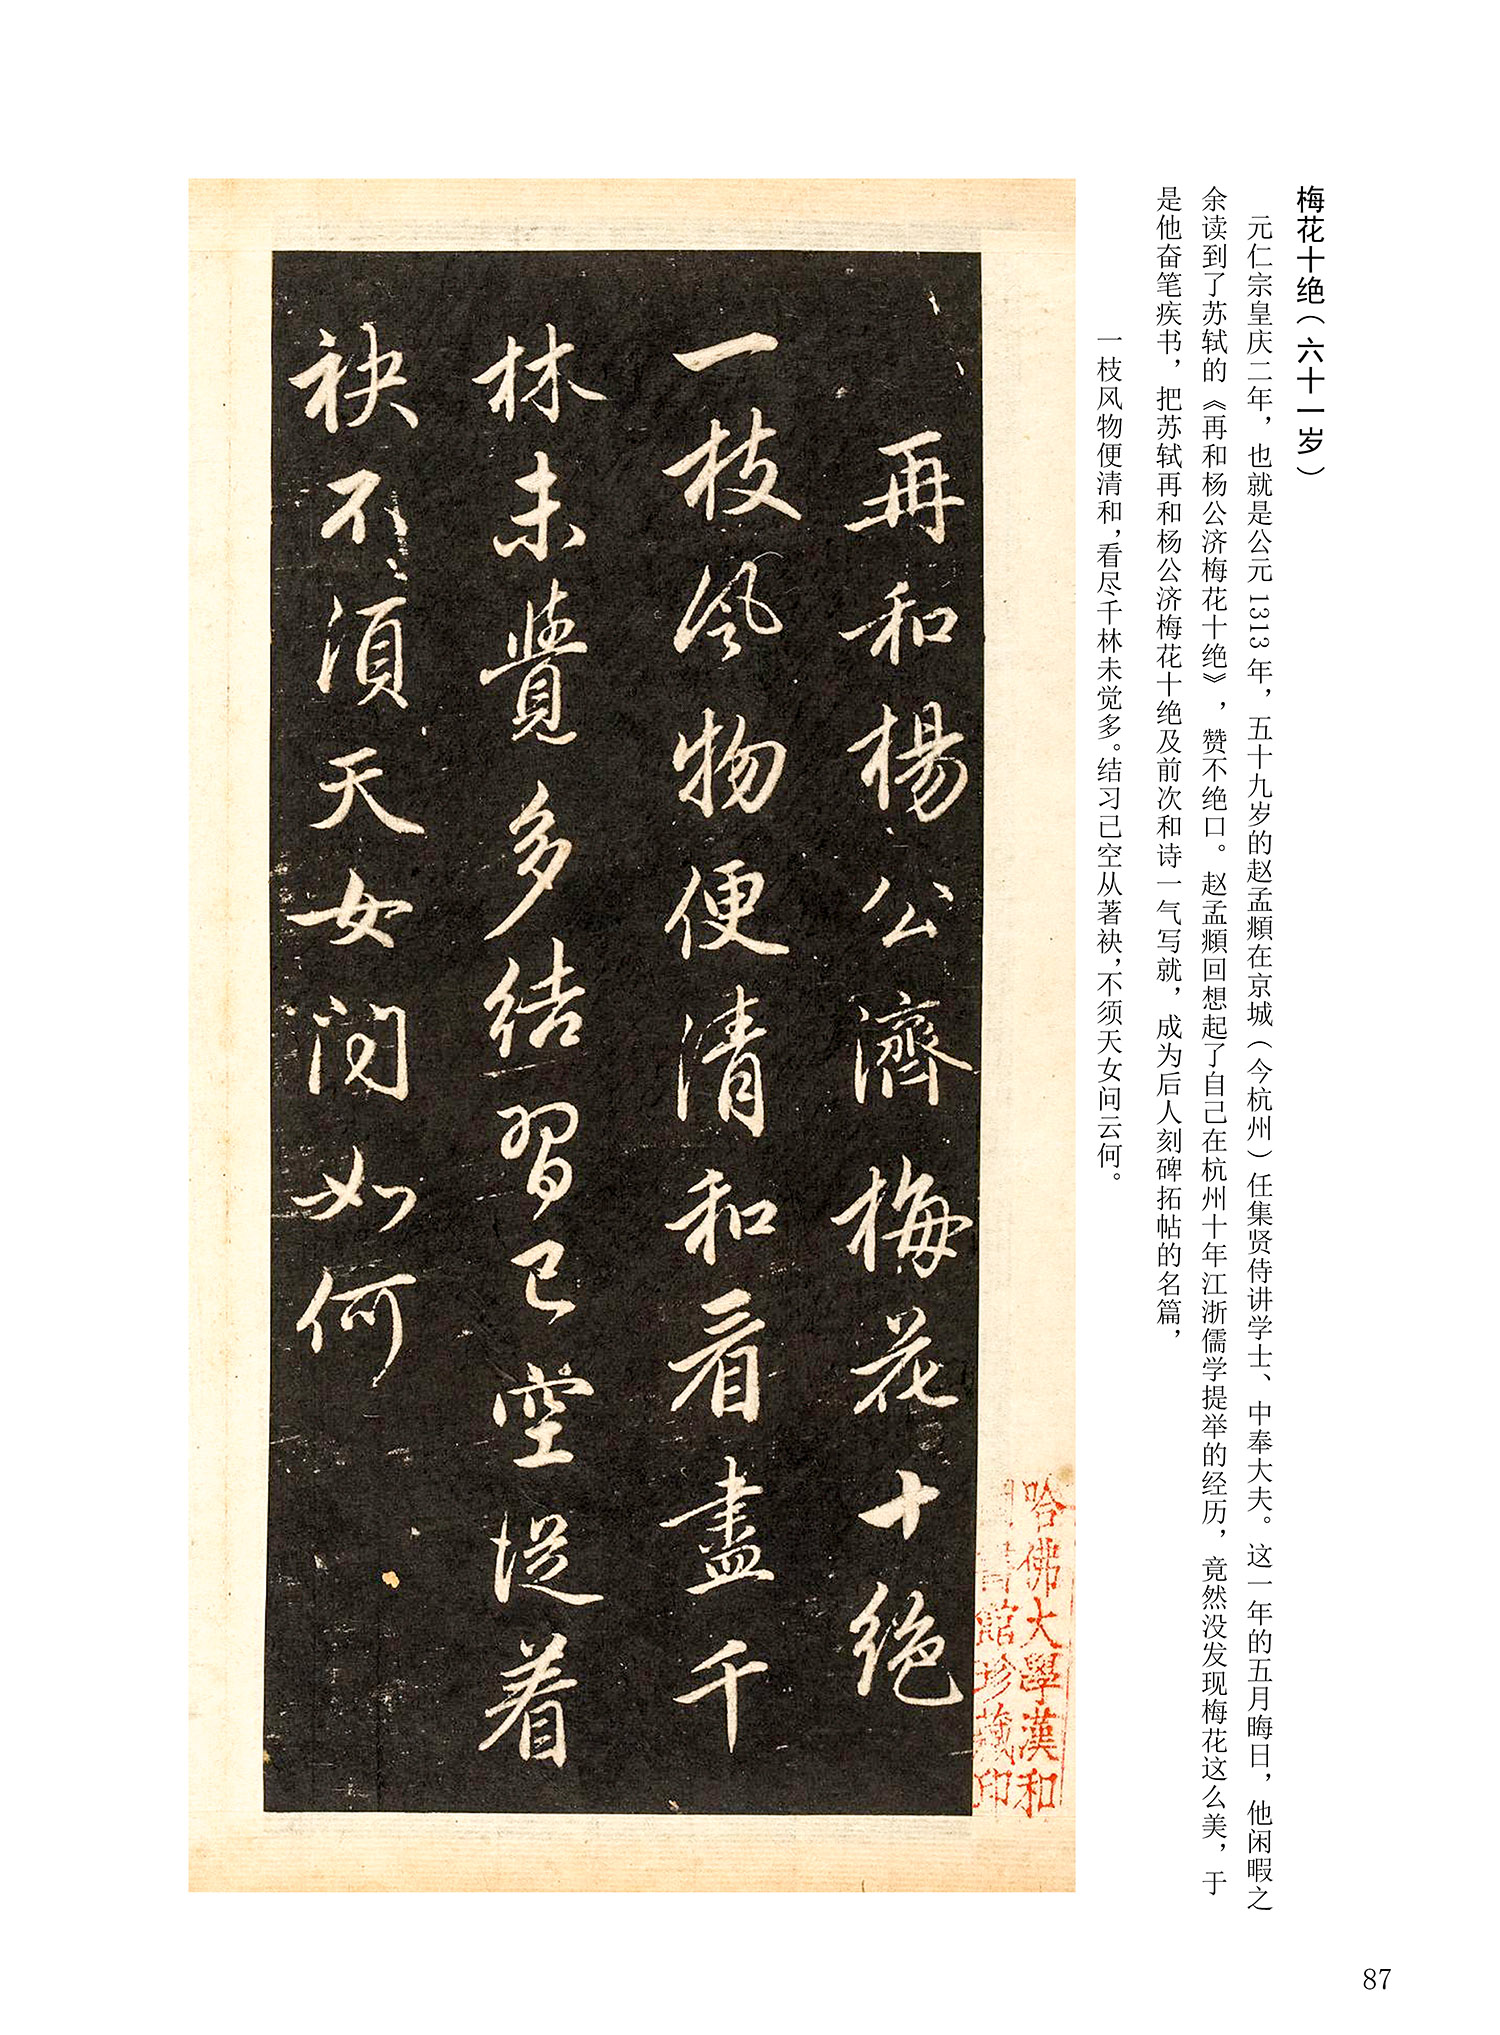 梅花十绝（六十一岁）
元仁宗皇庆二年，也就是公元1313年，五十九岁的赵孟頫在京城（今杭州）任集贤侍讲学士、中奉大夫。这一年的五月晦日，他闲暇之
余读到了苏轼的《再和杨公济梅花十绝》，赞不绝口。赵孟頫回想起了自己在杭州十年江浙儒学提举的经历，竟然没发现梅花这么美，于
是他奋笔疾书，把苏轼再和杨公济梅花十绝及前次和诗一气写就，成为后人刻碑拓帖的名篇，
一枝风物便清和，看尽千林未觉多。结习已空从著袂，不须天女问云何。
哈佛大學漢和
圖書館珍藏印
再和楊公濟梅花十絕
一枝風物便清和看盡千
林未覺多結習已空從着
袂不須天女問如何
87